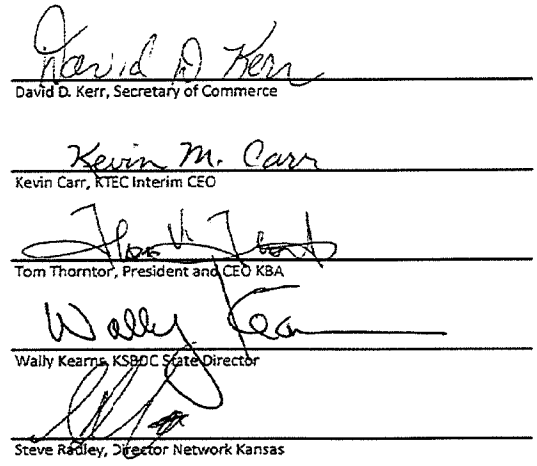 David D Kerr
David D. Kerr, Secretary of Commerce
Kevin M. Carr
Kevin Carr, KTEC Interim CEO
Tom Thornton, President and CEO KBA
Wally Kearns
Wally Kearns, KSBDC State Director
Steve Radley, Director Network Kansas